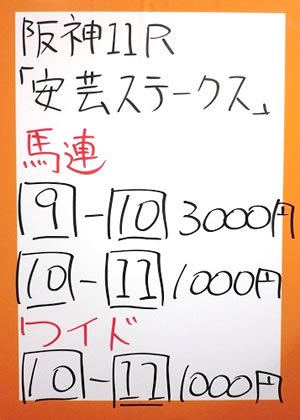 阪神11R
「安芸ステークス」
馬連
9-10 3000円
10-11 1000円
ワイド
10-11 1000円